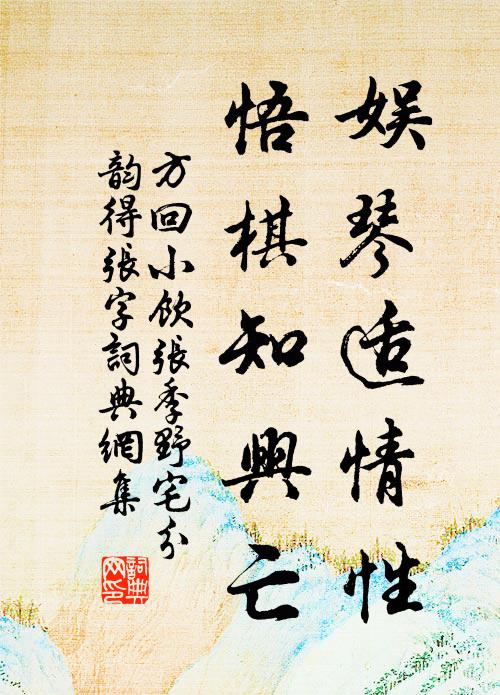 娱琴适情性
悟棋知興亡
方回小飲張季野宅分
韵得張字詞典網集
詞典
网印